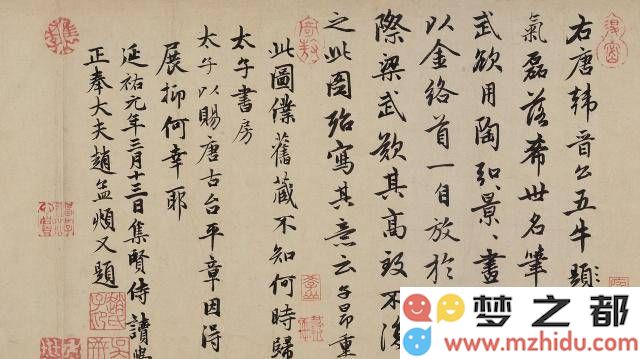 右唐韓晋公五牛
氣磊落希世名筆
武欲用陶弘景畫
以金絡首一自放於
際梁武歎其高致不復
之此圖殆寫其意云子昂重
此圖僕舊藏不知何時歸
太子書房
太子以賜唐古台平章因得
展抑何幸耶
延祐元年三月十三日集賢侍讀學
正奉大夫趙孟頫又題
梦之都
www.mzhidu.com